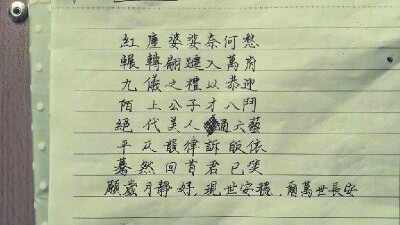 紅塵婆婆奈何愁
輾轉翩躚入萬府
九儀之禮以恭迎
陌上公子才八鬥
絕代美人通六藝
平仄韻律訴皈依
驀然回首君已笑
願歲月靜好,現世安穩,爾萬世長安